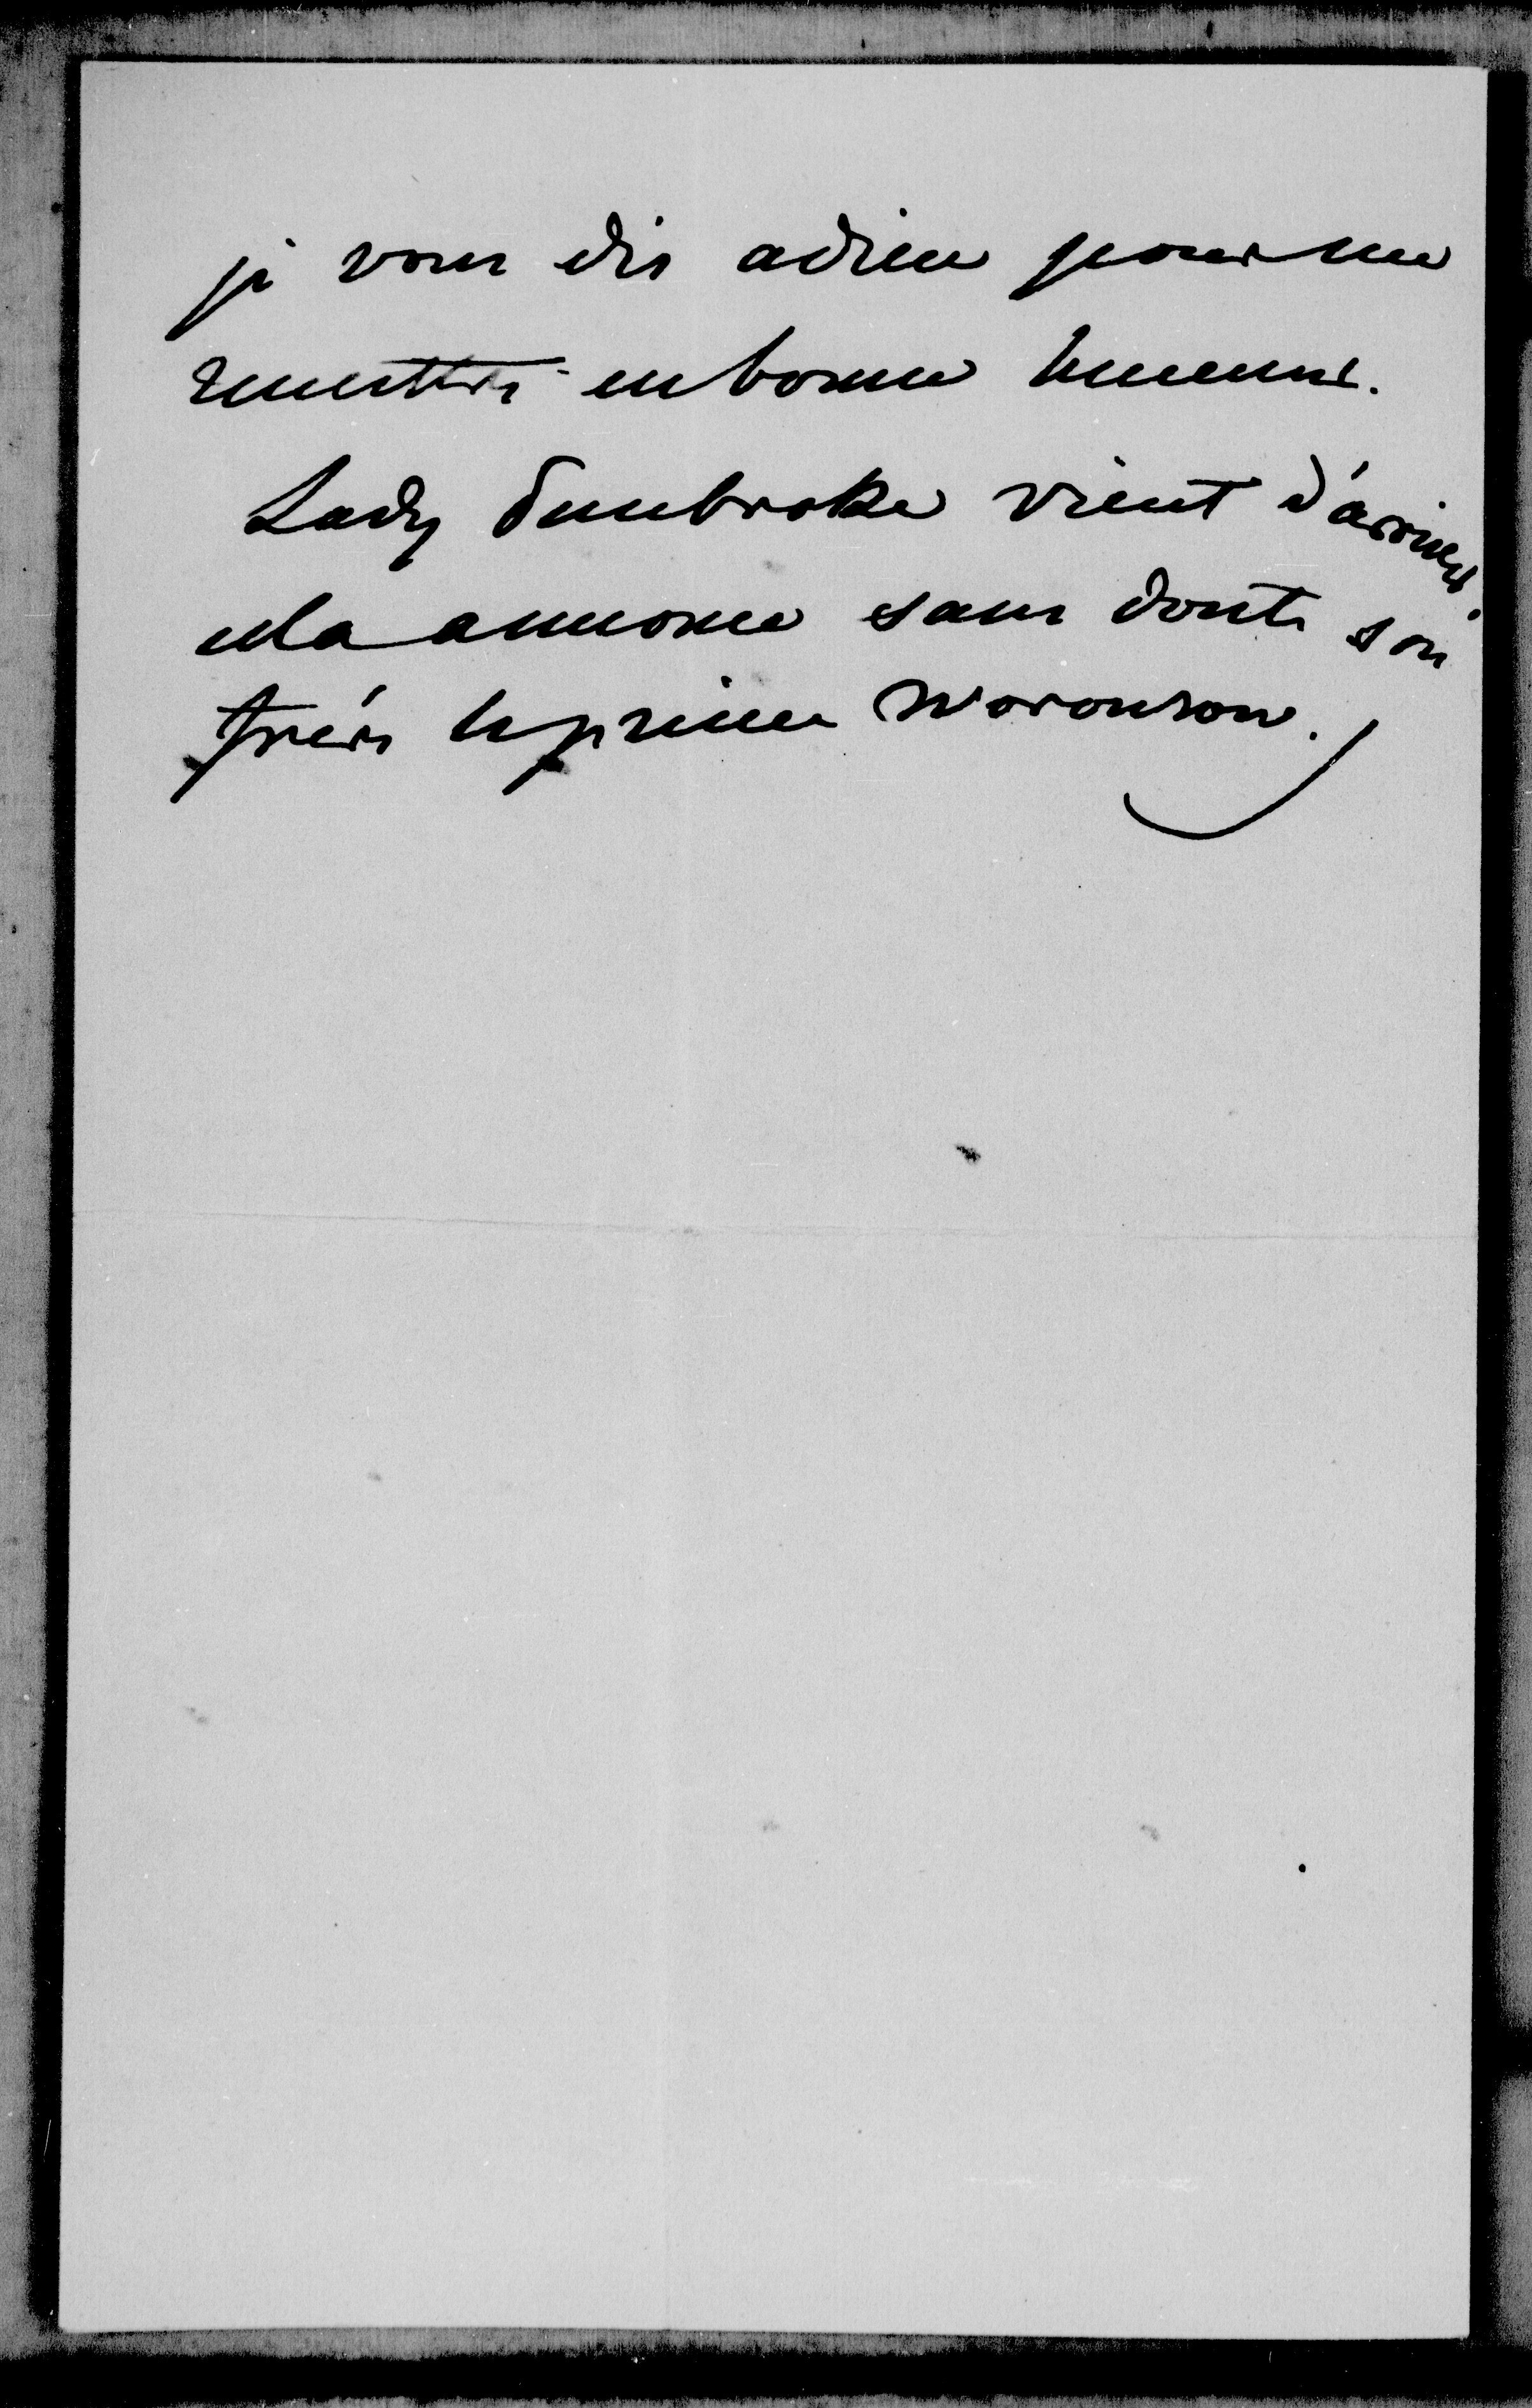 je vous dis adieu pour me
remettre en bonne humeur.
Lady Pembroke vient d'arriver.
cela annonce sans doute son
frère le prince Woronzow.